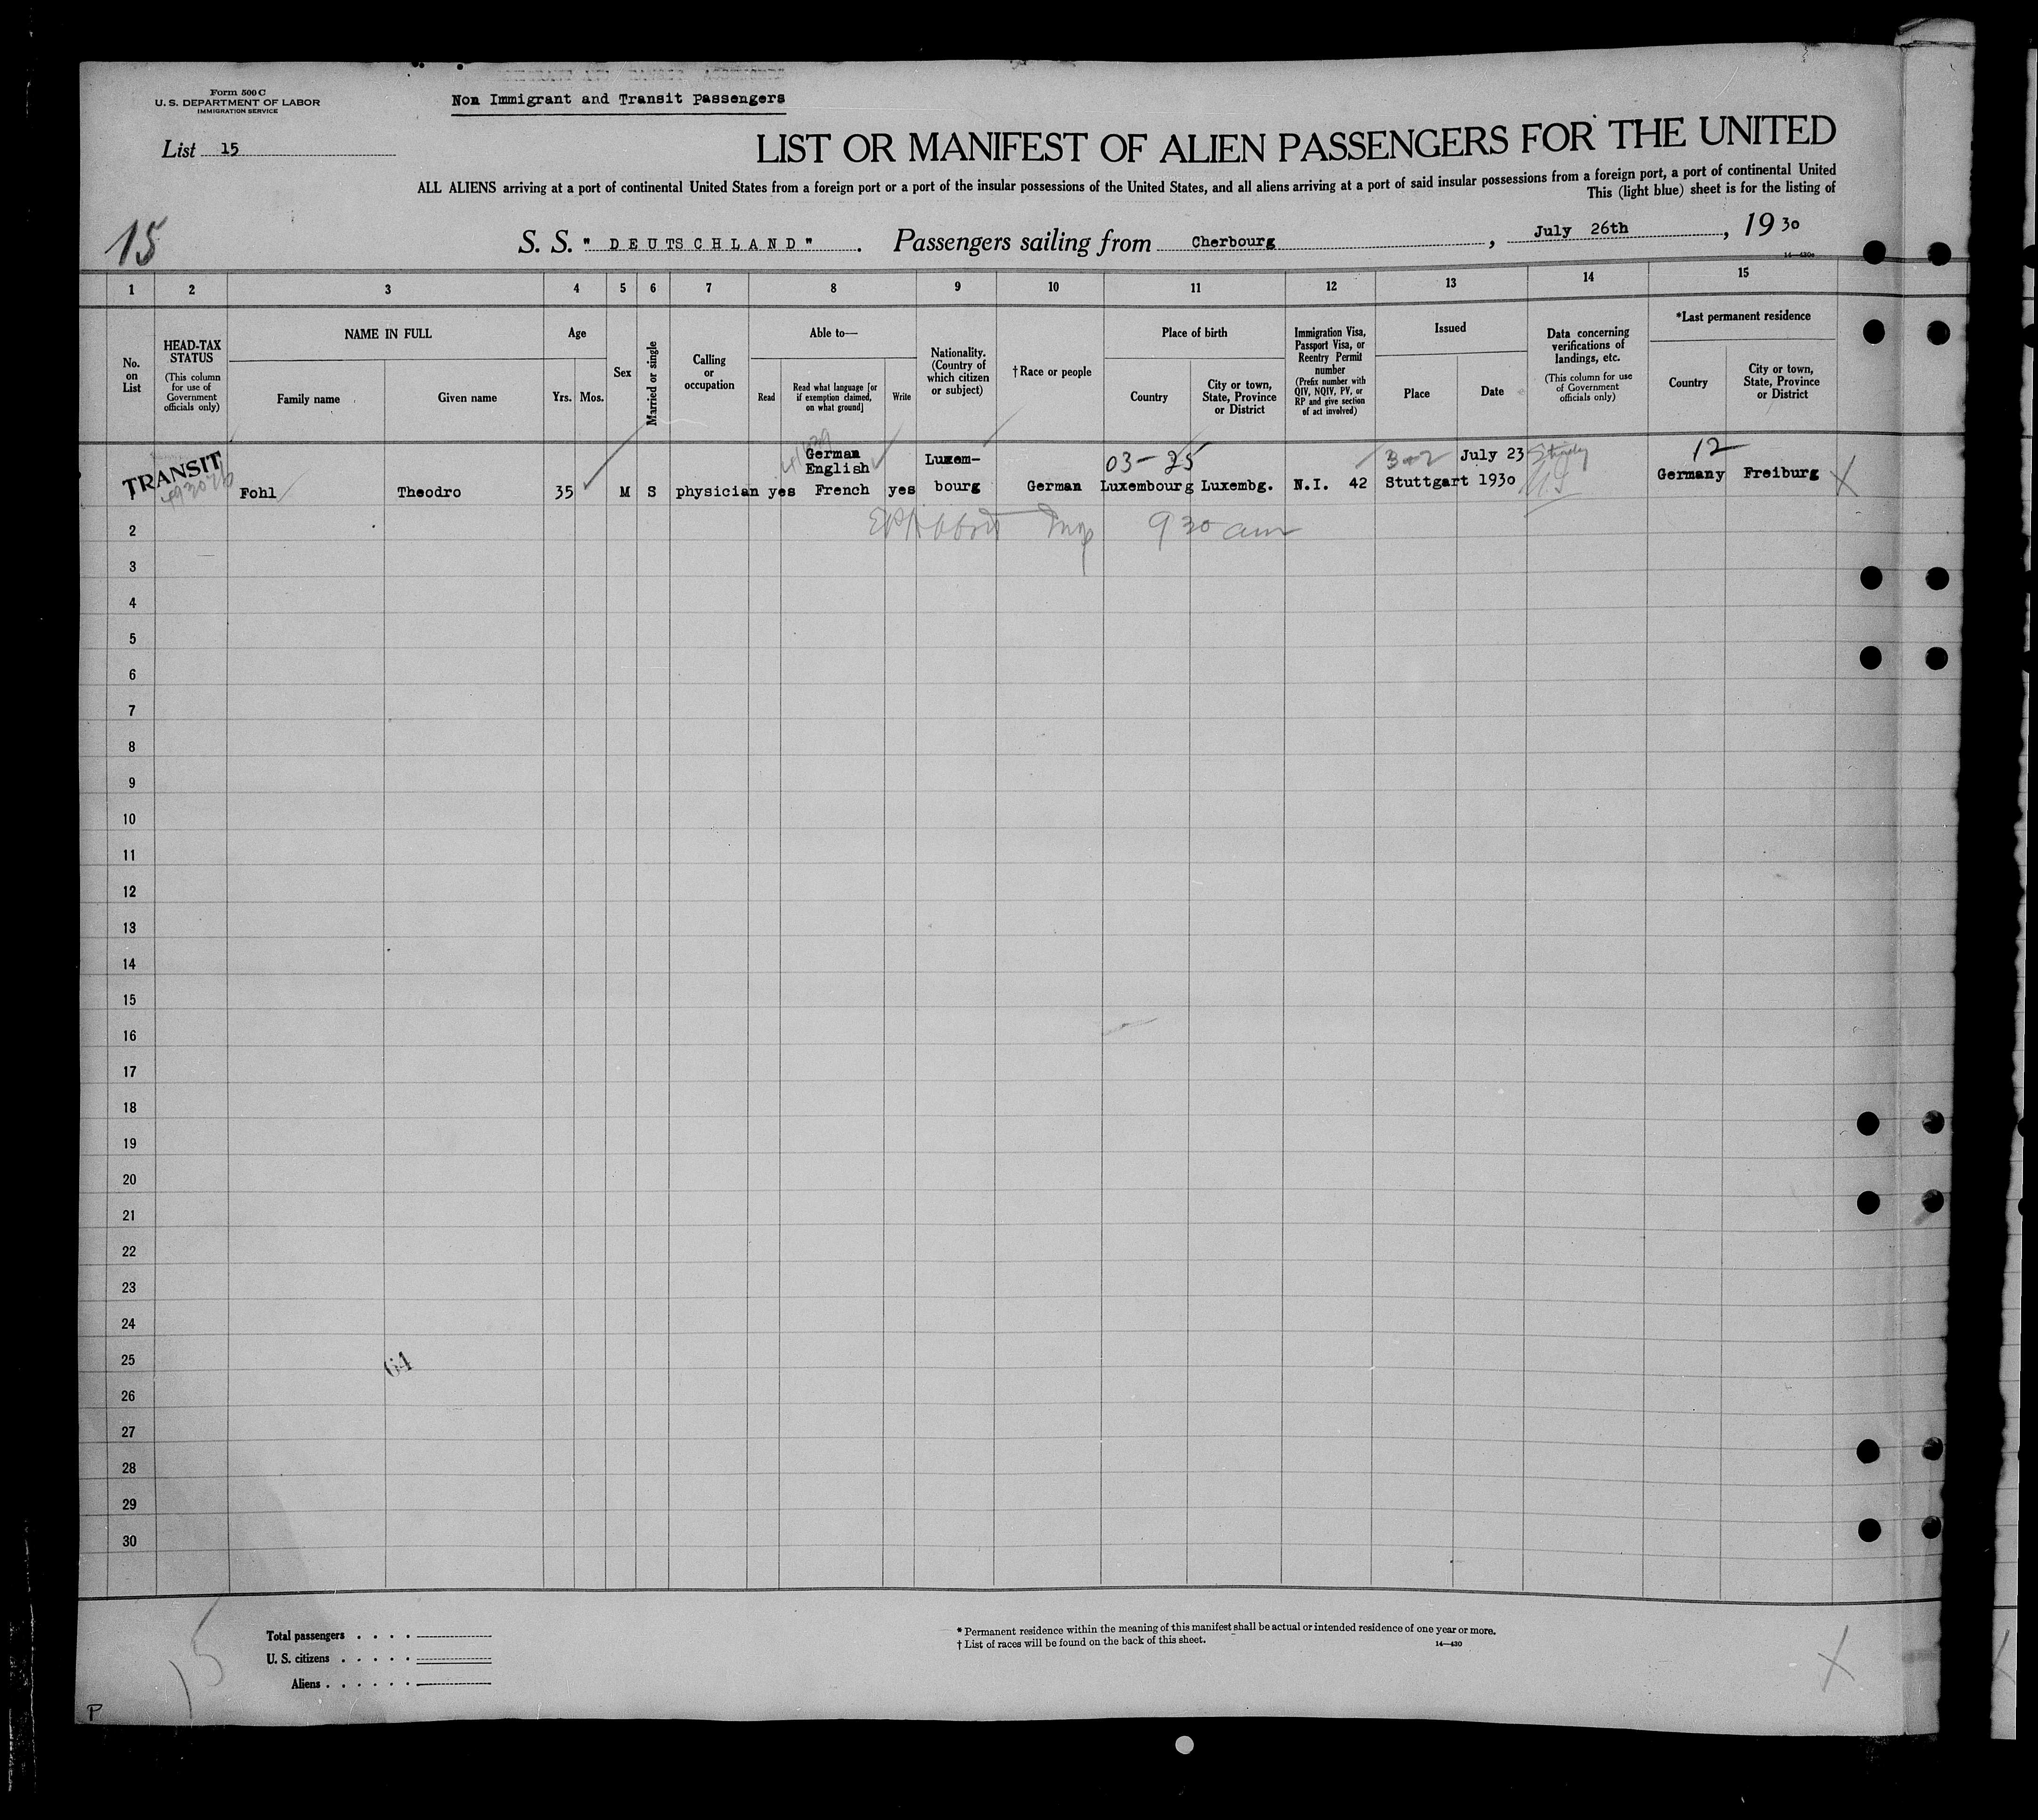 Form 500 C
U. S. DEPARTMENT OF LABOR
IMMIGRATION SERVICE
Non Immigrant and Transit Passengers
List 15
LIST OR MANIFEST OF ALIEN PASSENGERS FOR THE UNITED
ALL ALIENS arriving at a port of continental United States from a foreign port or a port of the insular possessions of the United States, and all aliens arriving at a port of said insular possessions from a foreign port, a port of continental United
This (light blue) sheet is for the listing of
15
S. S. " D E U T S C H L A N D " . Passengers sailing from Cherbourg , July 26th , 19 30
14-430c
1 2 3 4 5 6 7 8 9 10 11 12 13 14 15
No. on List
HEAD-TAX STATUS
(This column for use of Government officials only)
NAME IN FULL
Family name Given name
Age
Yrs. Mos.
Sex
Married or single
Calling or occupation
Able to—
Read
Read what language [or if exemption claimed, on what ground]
Write
Nationality. (Country of which citizen or subject)
† Race or people
Place of birth
Country
City or town, State, Province or District
Immigration Visa, Passport Visa, or Reentry Permit number
(Prefix number with QIV, NQIV, PV, or RP and give section of act involved)
Issued
Place Date
Data concerning verifications of landings, etc.
(This column for use of Government officials only)
*Last permanent residence
Country
City or town, State, Province or District
TRANSIT
German 03-25 3-2 July 23 12
English Luxem-
Fohl Theodro 35 M S physician yes French yes bourg German Luxembourg Luxembg. N.I. 42 Stuttgart 1930 Germany Freiburg X
9 30 am
2
3
4
5
6
7
8
9
10
11
12
13
14
15
16
17
18
19
20
21
22
23
24
25
64
26
27
28
29
30
15
Total passengers . . . .
U. S. citizens . . . . .
Aliens . . . . . .
* Permanent residence within the meaning of this manifest shall be actual or intended residence of one year or more.
† List of races will be found on the back of this sheet.
14-430
X
P